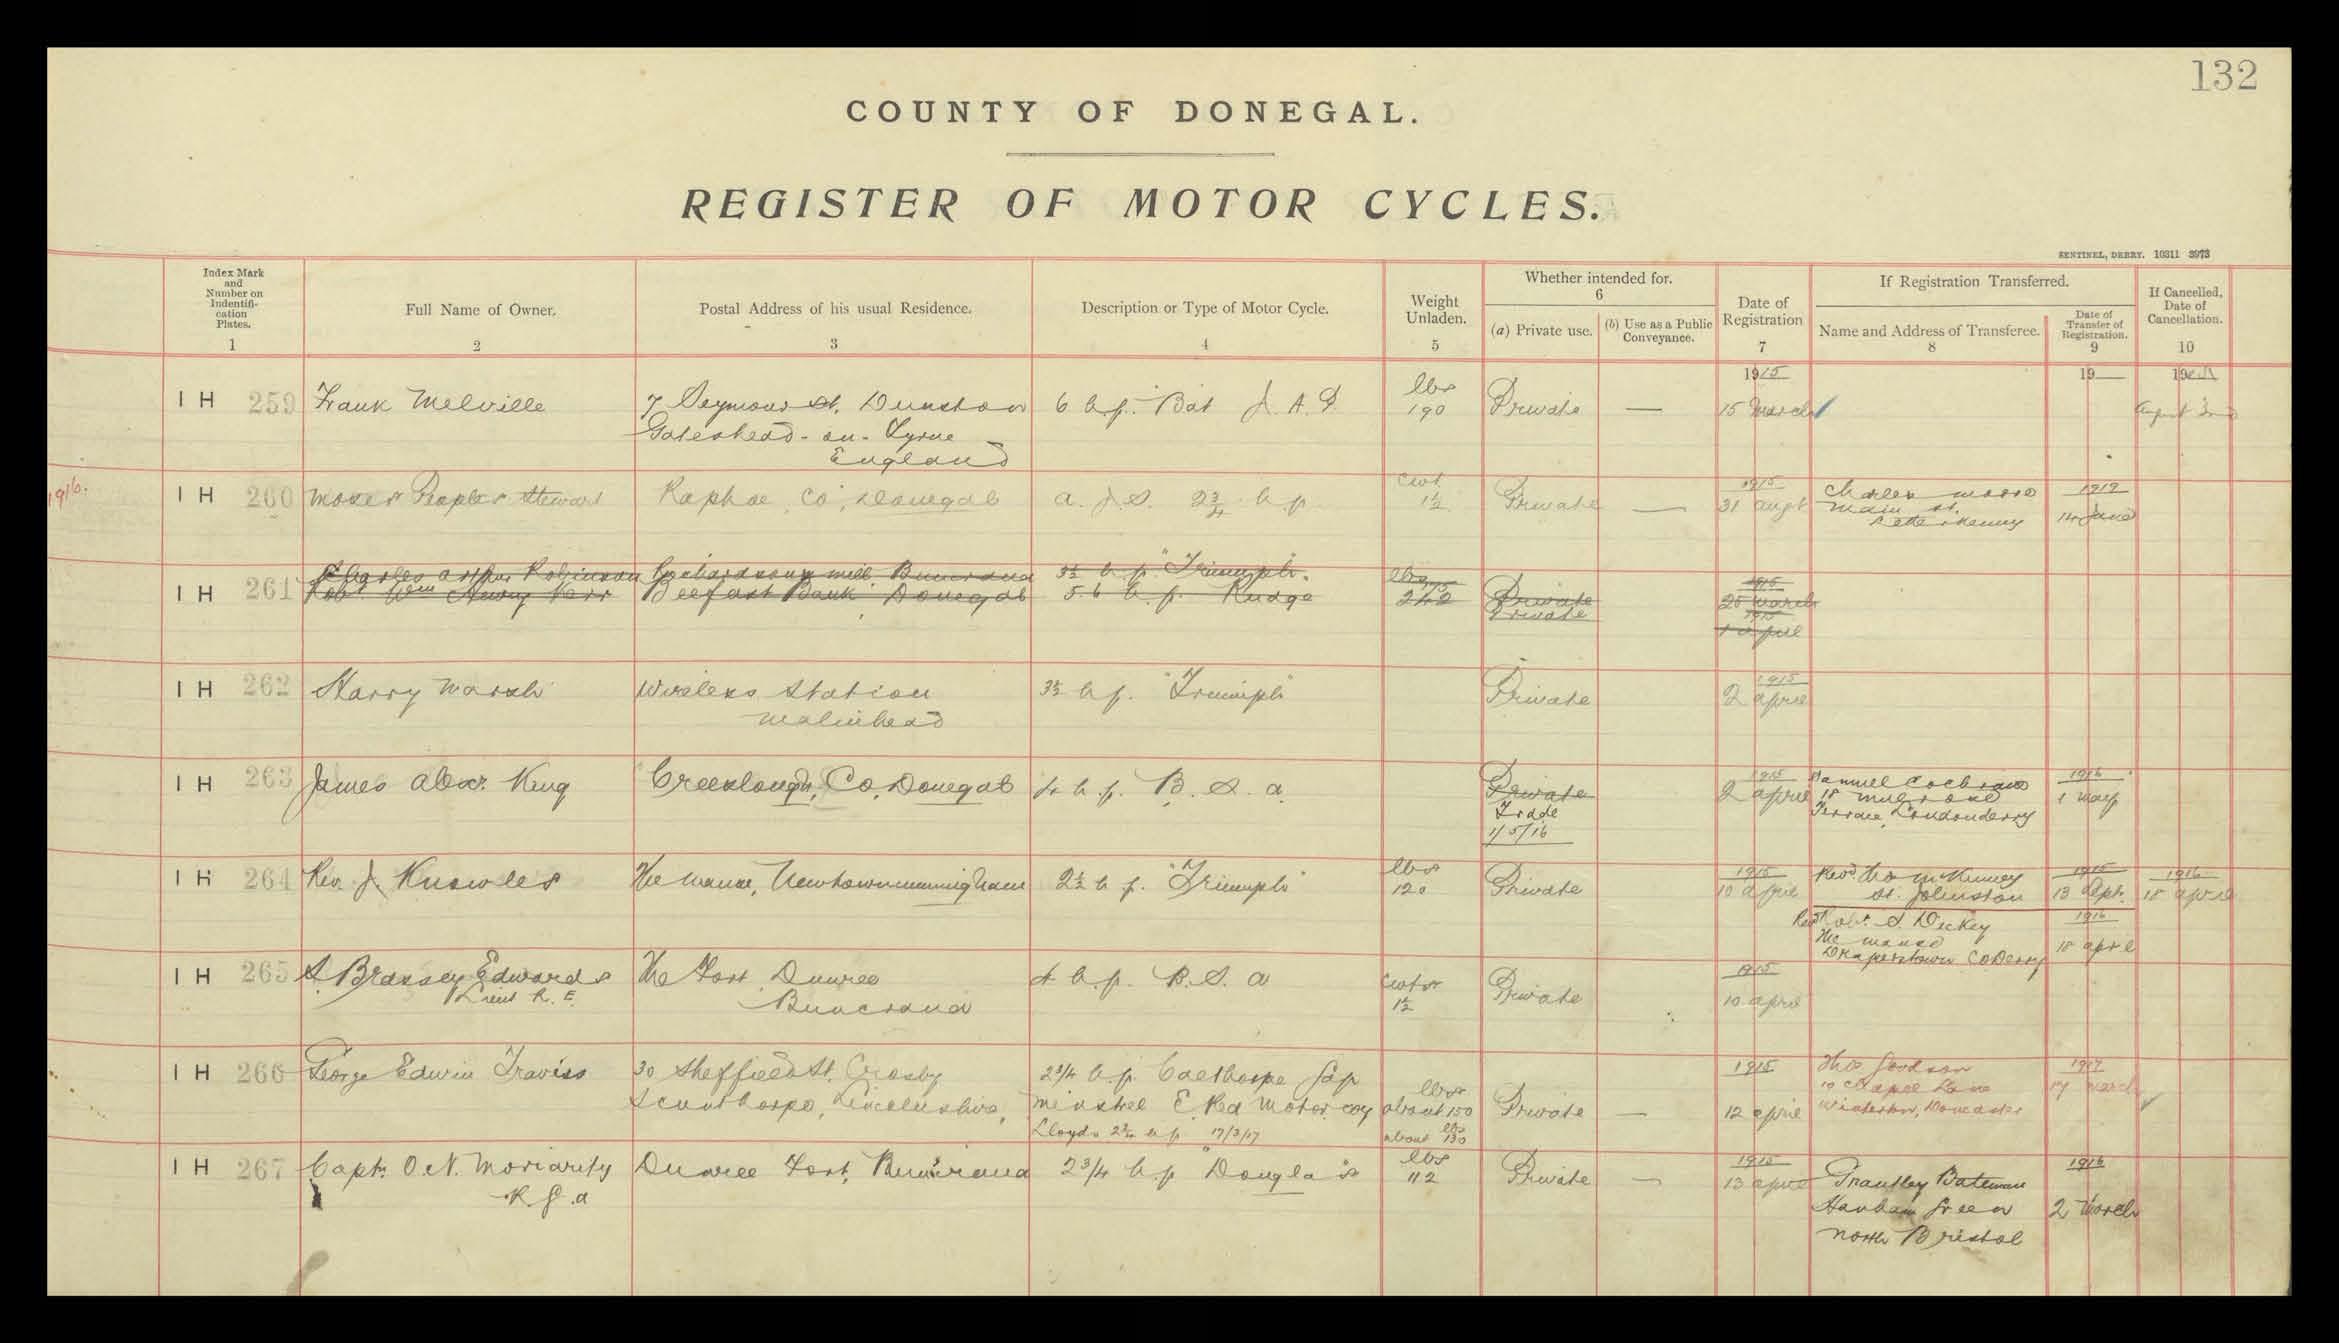 132
COUNTY OF DONEGAL.
REGISTER OF MOTOR CYCLES.
SENTINEL, DERRY. 10311 3973
Index Mark
and
Number on
Indentifi-
cation
Plates.
1
Full Name of Owner.
2
Postal Address of his usual Residence.
3
Description or Type of Motor Cycle.
4
Weight
Unladen.
5
Whether intended for.
6
(a) Private use.
(b) Use as a Public
Conveyance.
Date of
Registration
7
If Registration Transferred.
Name and Address of Transferee.
8
Date of
Transfer of
Registration.
9
If Cancelled,
Date of
Cancellation.
10
IH 259 Frank Melville
7 Seymour St. Dunston
Gateshead-on-Tyne
England
6 h.p. Bat J.A.P.
lbs
190
Private —
1915
15 March
19
19
August
1916.
IH 260 Moses Peoples Stewart
Raphoe, Co. Donegal
A.J.S. 2 3/4 h.p.
cwt
1½
Private —
1915
31 augt
Charles
Main St.
Letterkenny
1919
14 June
IH 261 Charles Arthur Robinson
Robt. Wm Henry Kerr
mill Buncrana
Belfast Bank Donegal
3½ h.p. "Triumph".
5.6 h.p. Rudge
lbs
242
Private
Private
1915
25 March
1915
1 april
IH 262 Harry Marsh
Wireless Station
Malinhead
3½ h.p. "Triumph"
Private
1915
2 april
IH 263 James Alexr. King
Creeslough, Co. Donegal
4 h.p. B.S.A.
Private
Trade
1/5/16
1915
2 april
Samuel Cochrane
18
Terrace, Londonderry
1916
1 May
IH 264 Rev. J. Knowles
The Manse, Newtowncunningham
2½ h.p. "Triumph"
lbs
120
Private
1915
10 april
Revd. Thos McKinney
St. Johnston
1915
13 Sept.
1916
18 april
Revd Robt. S. Dickey
The Manse
Draperstown Co Derry
1916
18 april
IH 265 S. Brassey Edwards
Lieut R.E.
The Fort Dunree
Buncrana
4 h.p. B.S.A
cwts
1½
Private
1915
10 april
IH 266 George Edwin Traviss
30 Sheffield St. Crosby
Scunthorpe, Lincolnshire,
2 3/4 h.p. Calthorpe Jap
Minstrel & Rea Motor Coy
Lloyds 2 3/4 h.p. 17/3/17
lbs
about 150
lbs
about 130
Private —
1915
12 april
Thos Jackson
19 Chapel Lane
Winterton, Doncaster
1917
17 March
IH 267 Capt. O.N. Moriarity
R.G.A
Dunree Fort, Buncrana
2 3/4 h.p. "Douglas"
lbs
112
Private —
1915
13 april
Grantley Bateman
Hanham Green
North Bristol
1916
2 March